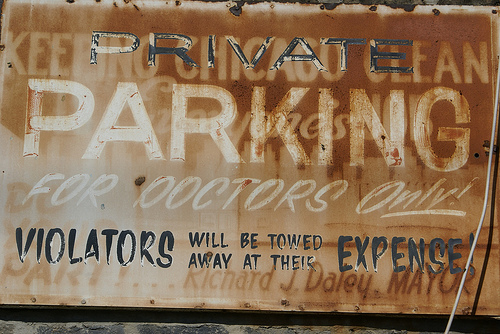 PRIVATE
KEEPING CHICAGO CLEAN
PARKING
FOR DOCTORS Only!
VIOLATORS WILL BE TOWED AWAY AT THEIR EXPENSE!
PART....
Richard J. Daley, MAYOR